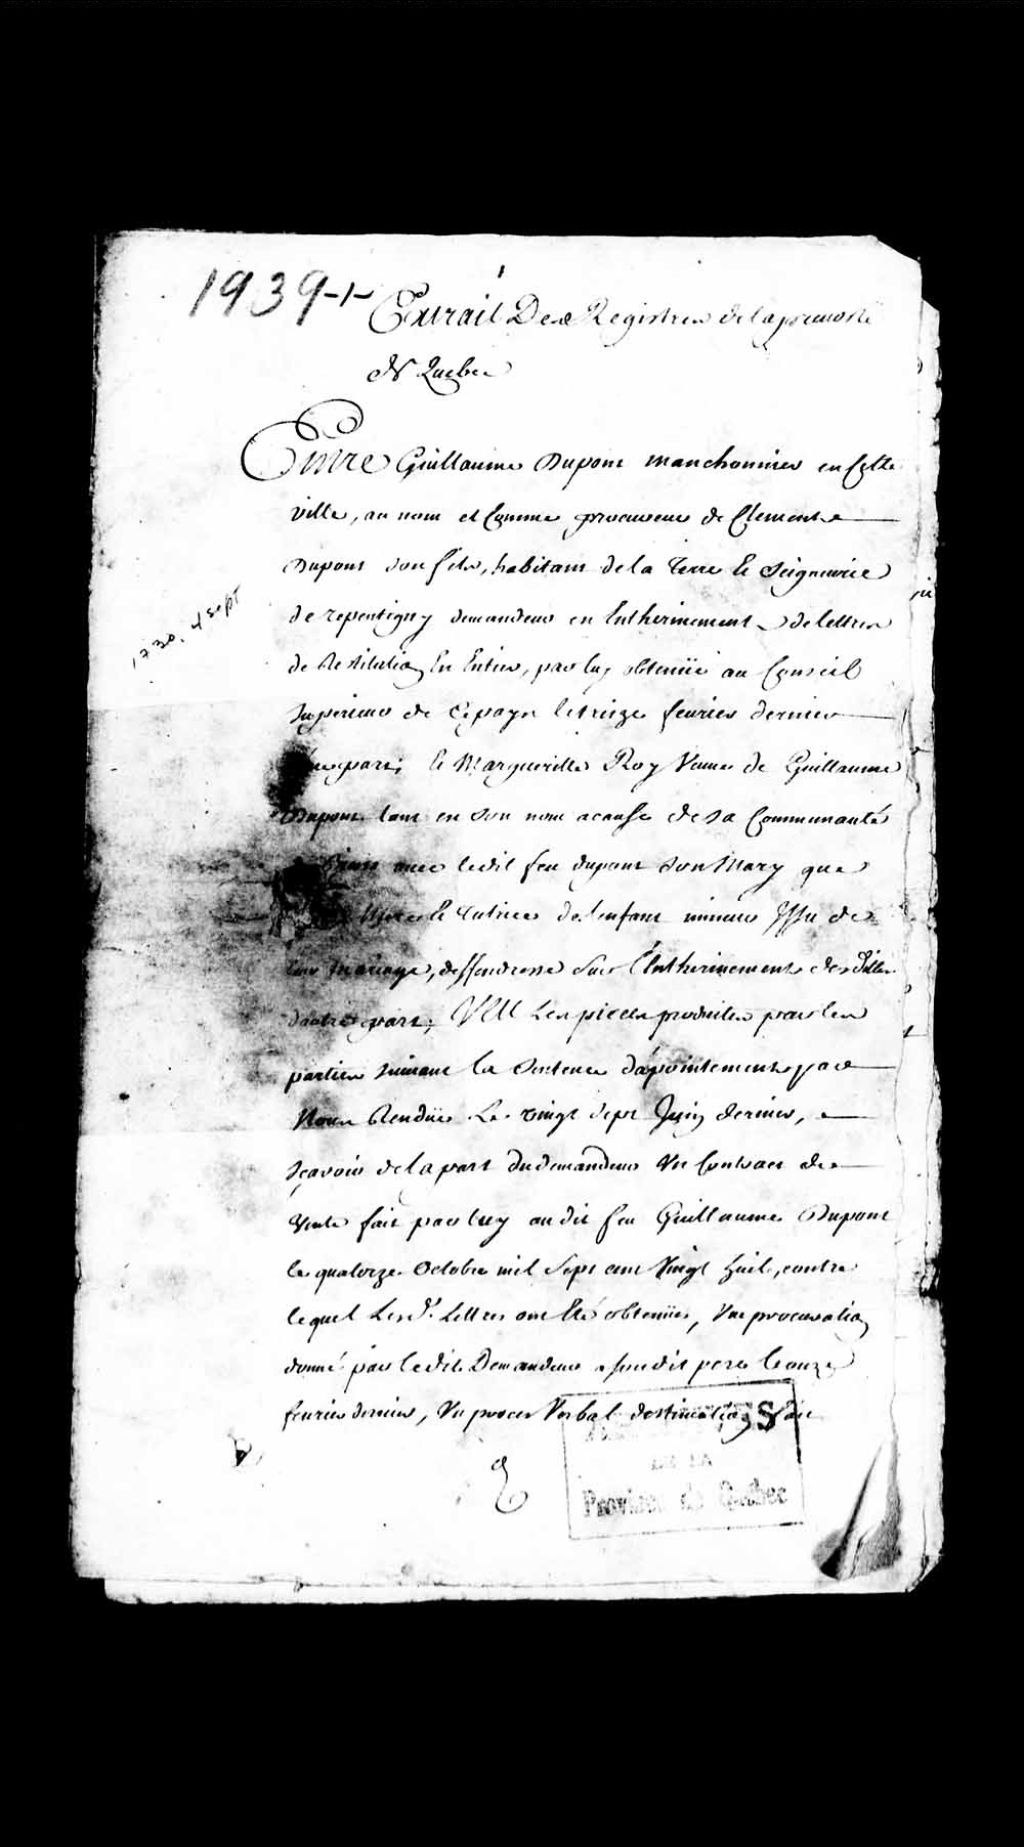 1
1939-1-
Extrait Des Registres de la prevosté
de Quebec
Entre Guillaume Dupont manchonnier en cette
ville, au nom et comme procureur de Clement
Dupont son fils, habitant de la Terre et Seigneurie
de repentigny demandeur en Enthérinement de lettres
1730. 4 sept
de Restitution En Entier, par luy obtenüe au Conseil
Superieur de ce pays le treize fevrier dernier
d'une part; et Margueritte Roy Veuve de Guillaume
Dupont tant en son nom acause de sa Communauté
de Biens avec ledit feu dupont son Mary que
Mere et tutrice de l'enfant mineur Issu de
leur Mariage, deffenderesse sur l'Enthérinement desdittes
d'autre part; VEU Les pieces produites par les
parties suivant la Sentence d'apointement par
Nous Rendüe Le vingt sept Juin dernier,
Sçavoir de la part du demandeur Un Contract de
Vente fait par luy audit feu Guillaume Dupont
le quatorze Octobre mil Sept cent Vingt huit, contre
lequel Lesd. Lettres ont Eté obtenües, Une procuration
donné par ledit Demandeur a sondit pere le onze
fevrier dernier, Un procès Verbal d'estimation
ARCHIVES
DE LA
Province de Québec